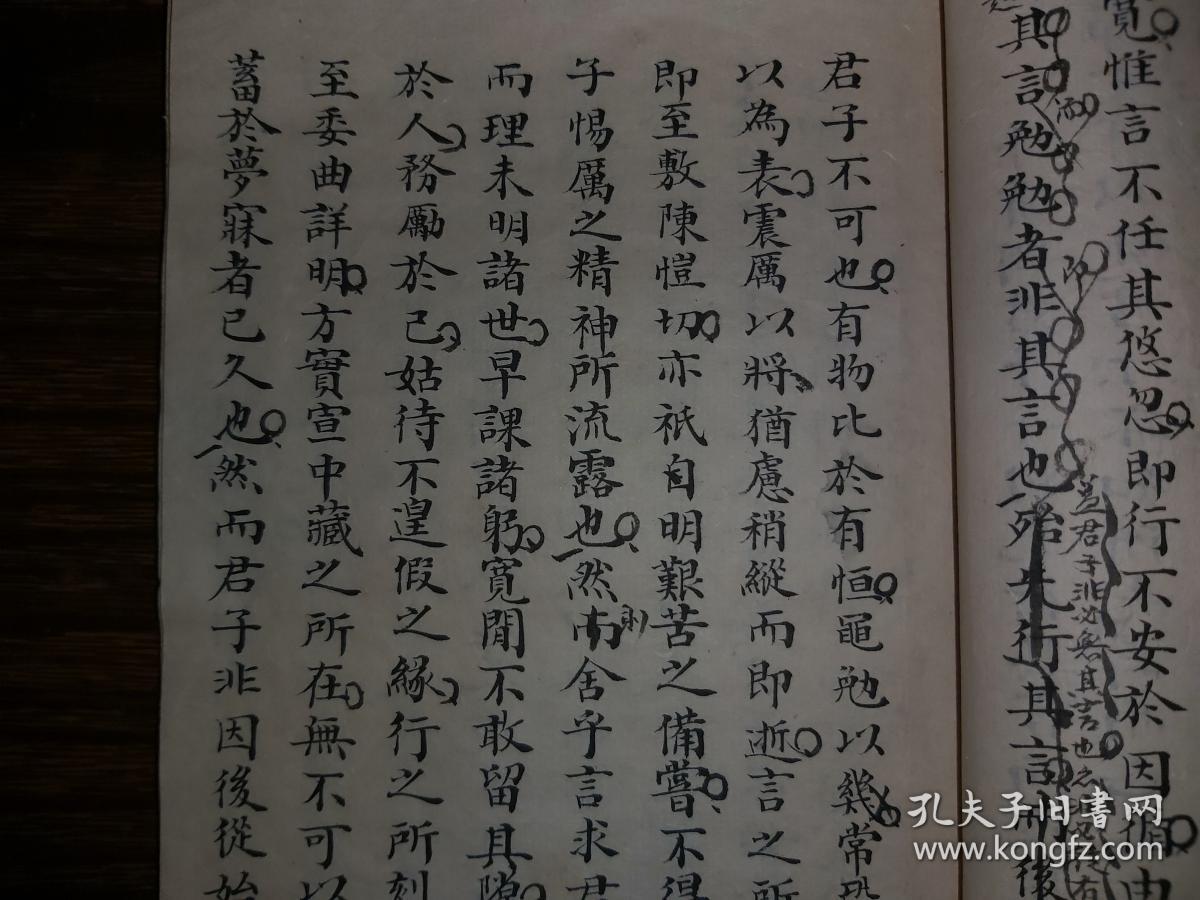 寬惟言不任其悠忽即行不安於因循由
其訒勉勉者非其言也殆先行其言而後
而
即
蓋君子非必無其言也
有
君子不可也有物比於有恒黽勉以幾常恐
以為表震厲以將猶慮稍縱而即逝言之所
即至敷陳愷切亦祇自明艱苦之備嘗不得
子惕厲之精神所流露也然而舍乎言求君
則
而理未明諸世早課諸躬寬閒不敢留其隙
於人務勵於己姑待不遑假之緣行之所刻
至委曲詳明方實宣中藏之所在無不可以
蓄於夢寐者已久也然而君子非因後從始
孔夫子旧书网
www.kongfz.com